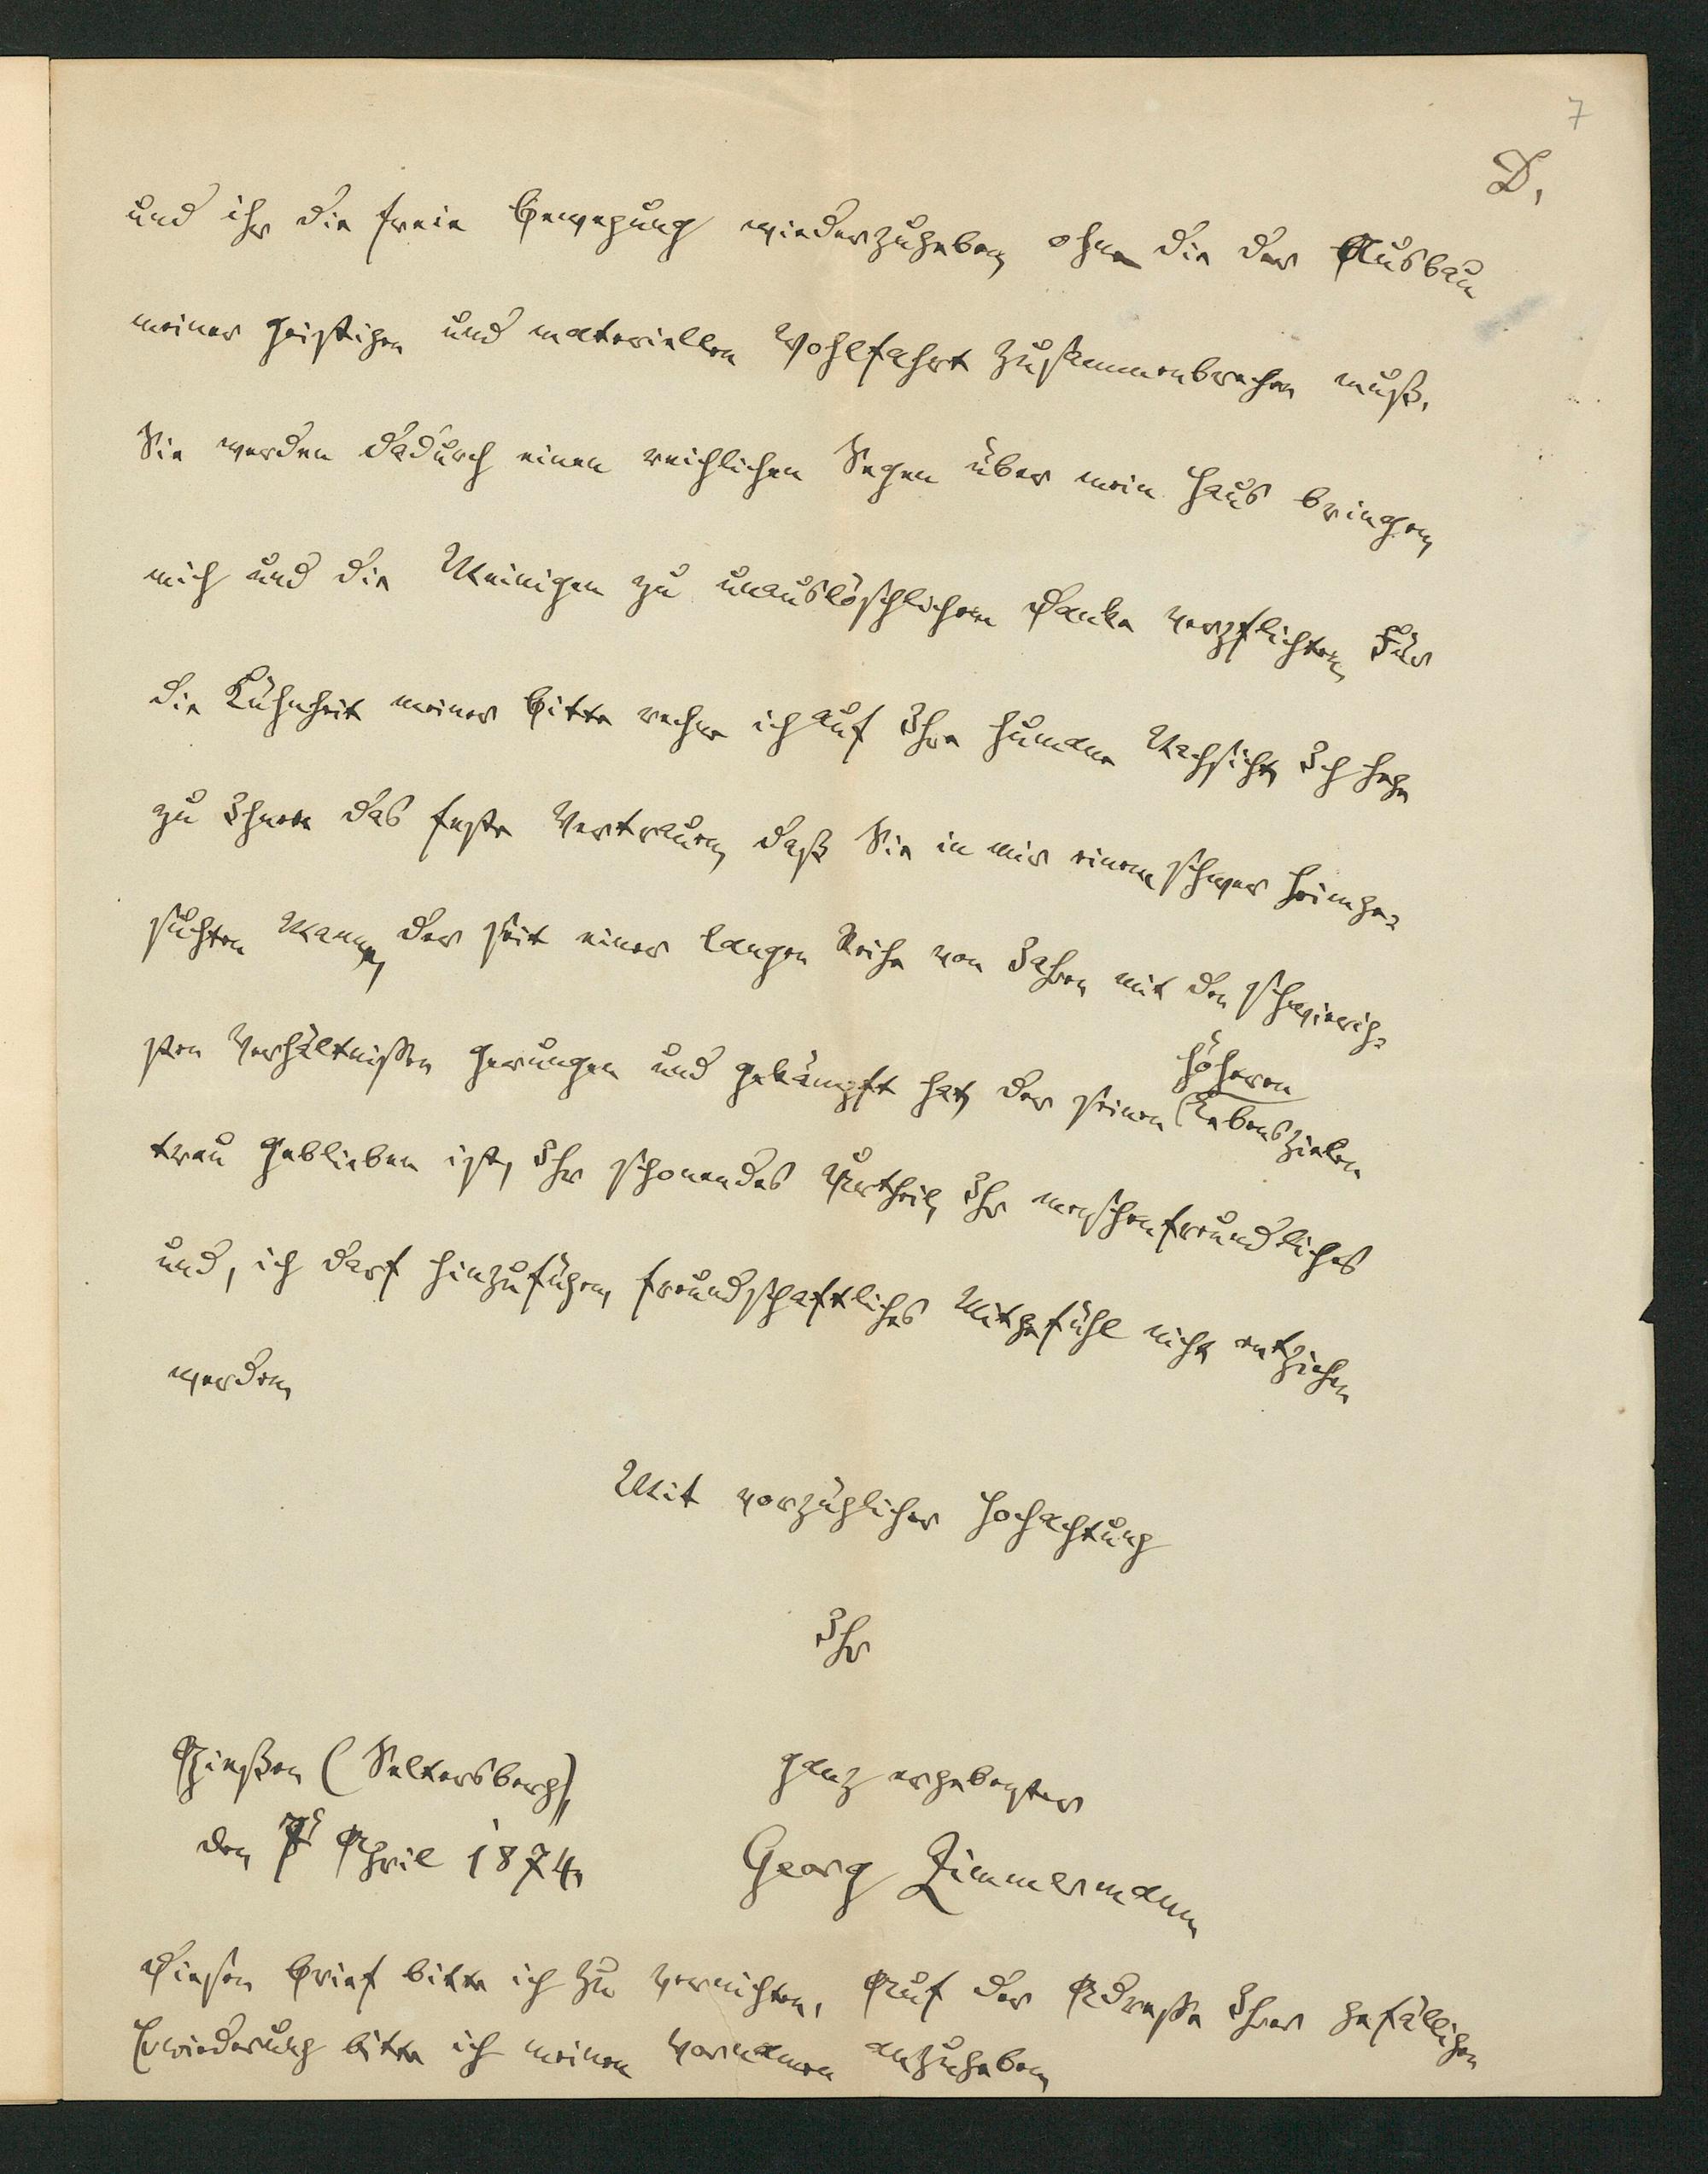 7
D,
und ihr die freie Bewegung wiederzugeben, ohne die der Ausbau
meiner geistigen und materiellen Wohlfahrt zusammenbrechen muß.
Sie werden dadurch einen reichlichen Segen über mein Haus bringen,
mich und die Meinigen zu unauslöschlichem Danke verpflichten. Für
die Kühnheit meiner Bitte rechne ich auf Ihre humane Nachsicht. Ich hege
zu Ihnen das feste Vertrauen, daß Sie in mir einem schwer heimge-
suchten Manne, der seit einer langen Reihe von Jahren mit den schwierig-
sten Verhältnißen gerungen und gekämpft hat, der seinen höheren Lebenszielen
treu geblieben ist, Ihr schonendes Urtheil, Ihr menschenfreundliches
und, ich darf hinzufügen, freundschaftliches Mitgefühl nicht entziehen
werden.
Mit vorzüglicher Hochachtung
Ihr
Gießen (Seltersberg), ganz ergebenster
den 7t April 1874. Georg Zimmermann
Diesen Brief bitte ich zu vernichten. Auf der Adresse Ihrer gefälligen
Erwiederung bitte ich meinen Vornamen anzugeben.